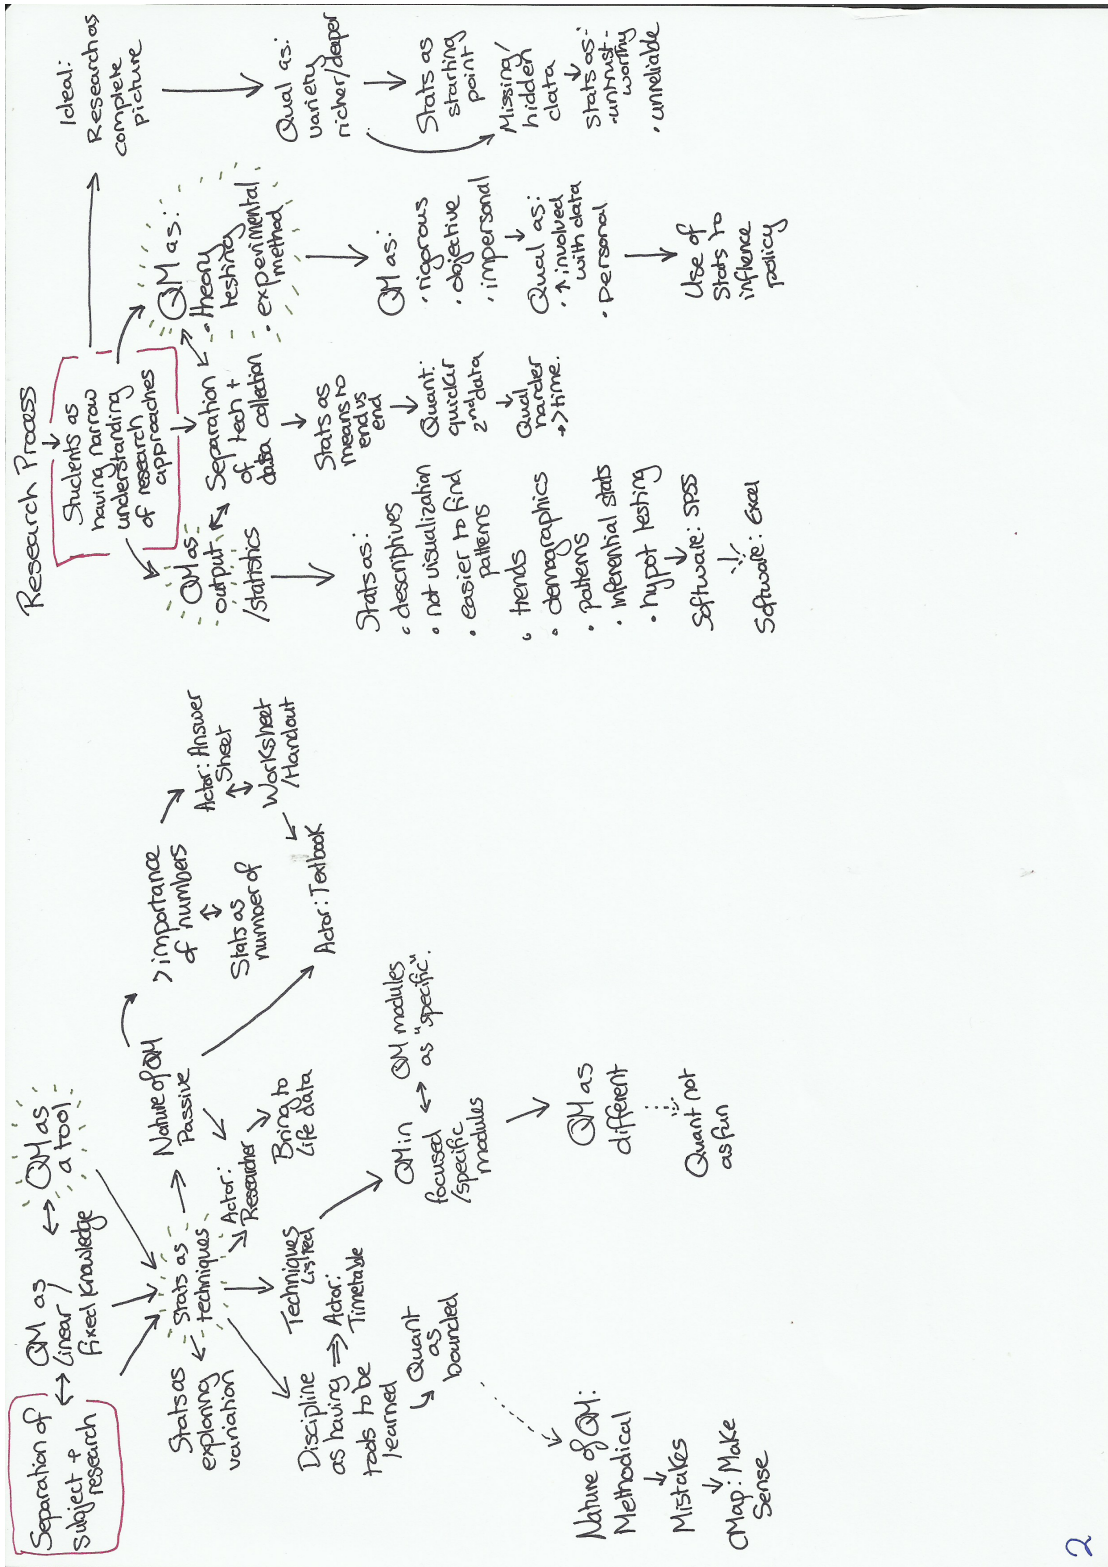 Separation of
subject +
research
QM as
linear/
fixed knowledge
QM as
a tool
Stats as
exploring
variation
Stats as
techniques
Nature of QM
Passive
> importance
of numbers
Stats as
number of
Actor: Answer
Sheet
Worksheet
/Handout
Actor: Textbook
Actor:
Researcher
Bring to
life data
Discipline
as having
tools to be
learned
Actor:
Timetable
Techniques
listed
Quant
as
bounded
QM in
focused
/specific
modules
QM modules
as "specific".
QM as
different
Quant not
as fun
Nature of QM:
Methodical
Mistakes
CMap: Make
Sense
Research Process
Students as
having narrow
understanding
of research
approaches
QM as
output
/statistics
Stats as:
• descriptives
• not visualization
• easier to find
patterns
• trends
• demographics
• patterns
• inferential stats
• hypot testing
Software: SPSS
Software: Excel
Separation
of tech +
data collection
Stats as
means to
end vs
end
Quant:
quicker
2nd data
Qual
harder
→ > time.
QM as:
• theory
testing
• experimental
method
QM as:
• rigorous
• objective
• impersonal
Qual as:
• ↑ involved
with data
• personal
Use of
stats to
influence
policy
Ideal:
Research as
complete
picture
Qual as:
variety
richer/deeper
Stats as
starting
point
Missing/
hidden
data
Stats as:
• untrust-
worthy
• unreliable
2